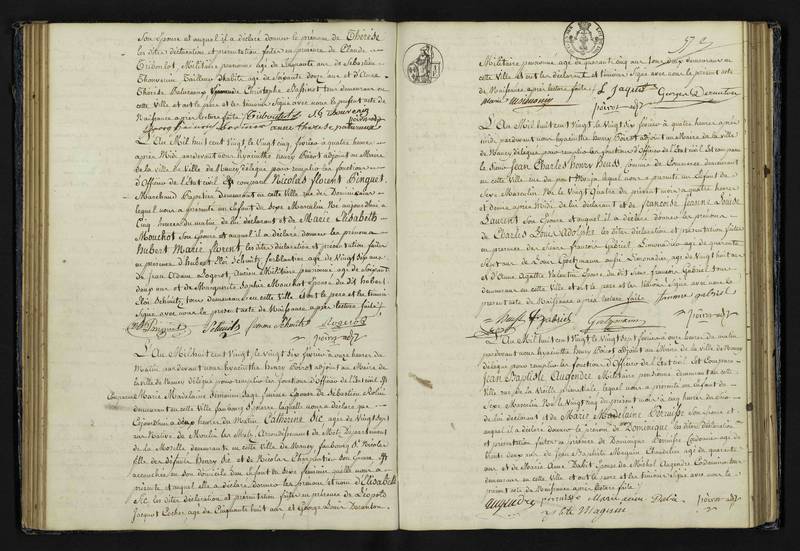 Son Epouse et auquel il a déclaré donner le prénom de Thérèse
les dites déclaration et présentation faites en présence de Claude
Triboulot, Militaire pensionné agé de soixante ans de Sébastien
Thouvenin Tailleur d'habits agé de soixante douze ans et d'Anne
Thérèse Christophe tous demeurant en
cette Ville et ont le père et les témoins signé avec nous le présent acte de
Naissance après lecture faite
L'An Mil huit cent Vingt, le Vingt cinq février à quatre heures
après Midi pardevant nous hyacinthe henry Poirot adjoint au Maire
de la ville de Nancy délégué pour remplir les fonctions
d'Officier de l'état civil Est comparu Nicolas florent Pinguet,
Marchand Tapissier demeurant en cette Ville rue des Dominicains
lequel nous a présenté un Enfant du sexe Masculin Né aujourd'hui à
Cinq heures du matin de lui déclarant et de Marie Elisabeth
Mouchot son Epouse et auquel il a déclaré donner les prénoms
hubert Marie florent les dites déclaration et présentation faites
en présence d'hubert Eloi Schmitz ferblantier agé de Vingt six ans
de Jean Adam Logerot ancien Militaire pensionné agé de soixante
douze ans et de Marguerite Sophie Mouchot Epouse du dit hubert
Eloi Schmitz tous demeurant en cette ville et ont le père et les témoins
signé avec nous le présent acte de Naissance après lecture faite
L'An Mil huit cent Vingt, le Vingt six février à onze heures du
Matin pardevant nous hyacinthe henry Poirot adjoint au Maire de
la ville de Nancy délégué pour remplir les fonctions d'Officier de l'état civil Est
Comparue Marie Madelaine Simonin Sage femme Epouse de Sébastien
demeurant en cette Ville faubourg St Pierre laquelle nous a déclaré que
Cejourd'hui à heures du Matin Catherine Sic agée de Vingt
ans Native de Moulin les Metz Arrondissement de Metz Département
de la Moselle demeurant en cette ville de Nancy faubourg St Nicolas
fille de défunts Henry Sic et de Nicole Charpentier son Epouse Est
accouchée en son domicile d'un Enfant du sexe féminin qu'elle nous a
présenté et auquel elle a déclaré donner les prénoms et nom d'Elisabeth
Sic les dites déclaration et présentation faites en présence de Léopold
Jacquot Cocher agé de Cinquante huit ans et George Louis Dardenton
572
Militaire pensionné agé de quarante cinq ans tous deux demeurant en
cette Ville et ont les déclarante et témoins signé avec nous le présent acte
de Naissance après lecture faite L Jaquot
L'An Mil huit cent Vingt, le Vingt six février à quatre heures après
midi, pardevant nous hyacinthe henry Poirot adjoint au Maire de la ville
de Nancy délégué pour remplir les fonctions d'Officier de l'état civil Est comparu
le Sieur Jean Charles henry Neuss, Commis de Commerce demeurant
en cette Ville rue du pont Moujа lequel nous a présenté un Enfant du
sexe Masculin Né le Vingt quatre du présent mois à quatre heures
et demie après midi de lui déclarant et de françoise Jeanne Louise
Laurent son Epouse et auquel il a déclaré donner les prénoms
de Charles Louis Adolphe les dites déclaration et présentation faites
en présence de Sieur françois Gabriel, Limonadier agé de quarante
sept ans de Louis Goetzmann aussi Limonadier, agé de Vingt huit ans
et d'Anne Agathe Valentin Epouse du dit Sieur françois Gabriel tous
demeurant en cette Ville et ont le père et les témoins signé avec nous le
présent acte de Naissance après lecture faite femme gabriel
Neuss f gabriel Goetzmann
L'An Mil huit cent Vingt, le Vingt sept février à onze heures du matin
pardevant nous hyacinthe henry Poirot adjoint au Maire de la Ville de Nancy
délégué pour remplir les fonctions d'Officier de l'Etat civil Est Comparu
Jean Baptiste Augendre Militaire pensionné demeurant en cette
Ville rue de la Vieille lequel nous a présenté un Enfant du
sexe Masculin Né le Vingt six du présent mois à cinq heures du soir
de lui déclarant et de Marie Madelaine Pernisse son Epouse et
auquel il a déclaré donner le prénom de Dominique les dites déclaration
et présentation faites en présence de Dominique Pernisse Cordonnier agé de
trente deux ans, de Jean Baptiste Mengin Chandelier agé de quarante
ans et de Marie Anne Dalié Epouse de Michel Augendre Cordonnier tous
demeurant en cette Ville et ont le père et les témoins signé avec nous le
présent acte de Naissance après lecture faite
augendre Pernisse Marie anne Dalié